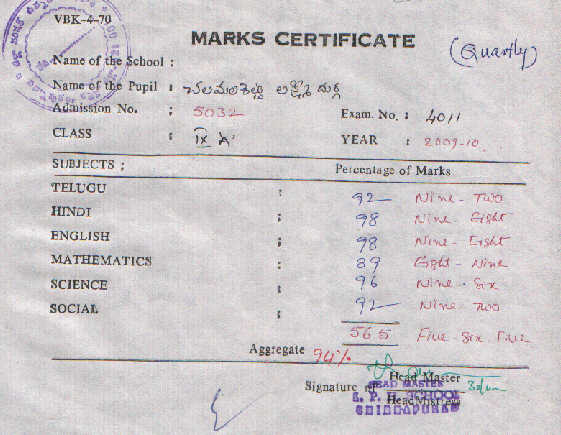 VBK-4-70
MARKS CERTIFICATE
(Quartly)
Name of the School :
Name of the Pupil : చలమలశెట్టి లక్ష్మీ దుర్గ
Admission No. : 5032 Exam. No. : 4011
CLASS : IX A' YEAR : 2009-10
SUBJECTS : Percentage of Marks
TELUGU : 92 Nine - Two
HINDI : 98 Nine - Eight
ENGLISH : 98 Nine - Eight
MATHEMATICS : 89 Eight - Nine
SCIENCE : 96 Nine - Six
SOCIAL : 92 Nine - Two
565 Five - Six - Five
Aggregate 94%
Head Master
Signature of HEAD MASTER
S. P. H. SCHOOL
Head Mistress